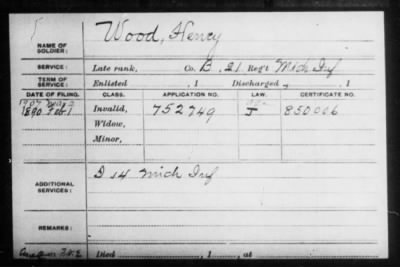 Wood, Henry
NAME OF SOLDIER:
SERVICE: Late rank, Co. B, 21 Reg't Mich Inf
TERM OF SERVICE: Enlisted , 1 Discharged , 1
DATE OF FILING. CLASS. APPLICATION NO. LAW. CERTIFICATE NO.
1890 Feb 1 Invalid, 752749 J 850006
Widow,
Minor,
ADDITIONAL SERVICES: D 14 Mich Inf
REMARKS:
Died , 1 , at